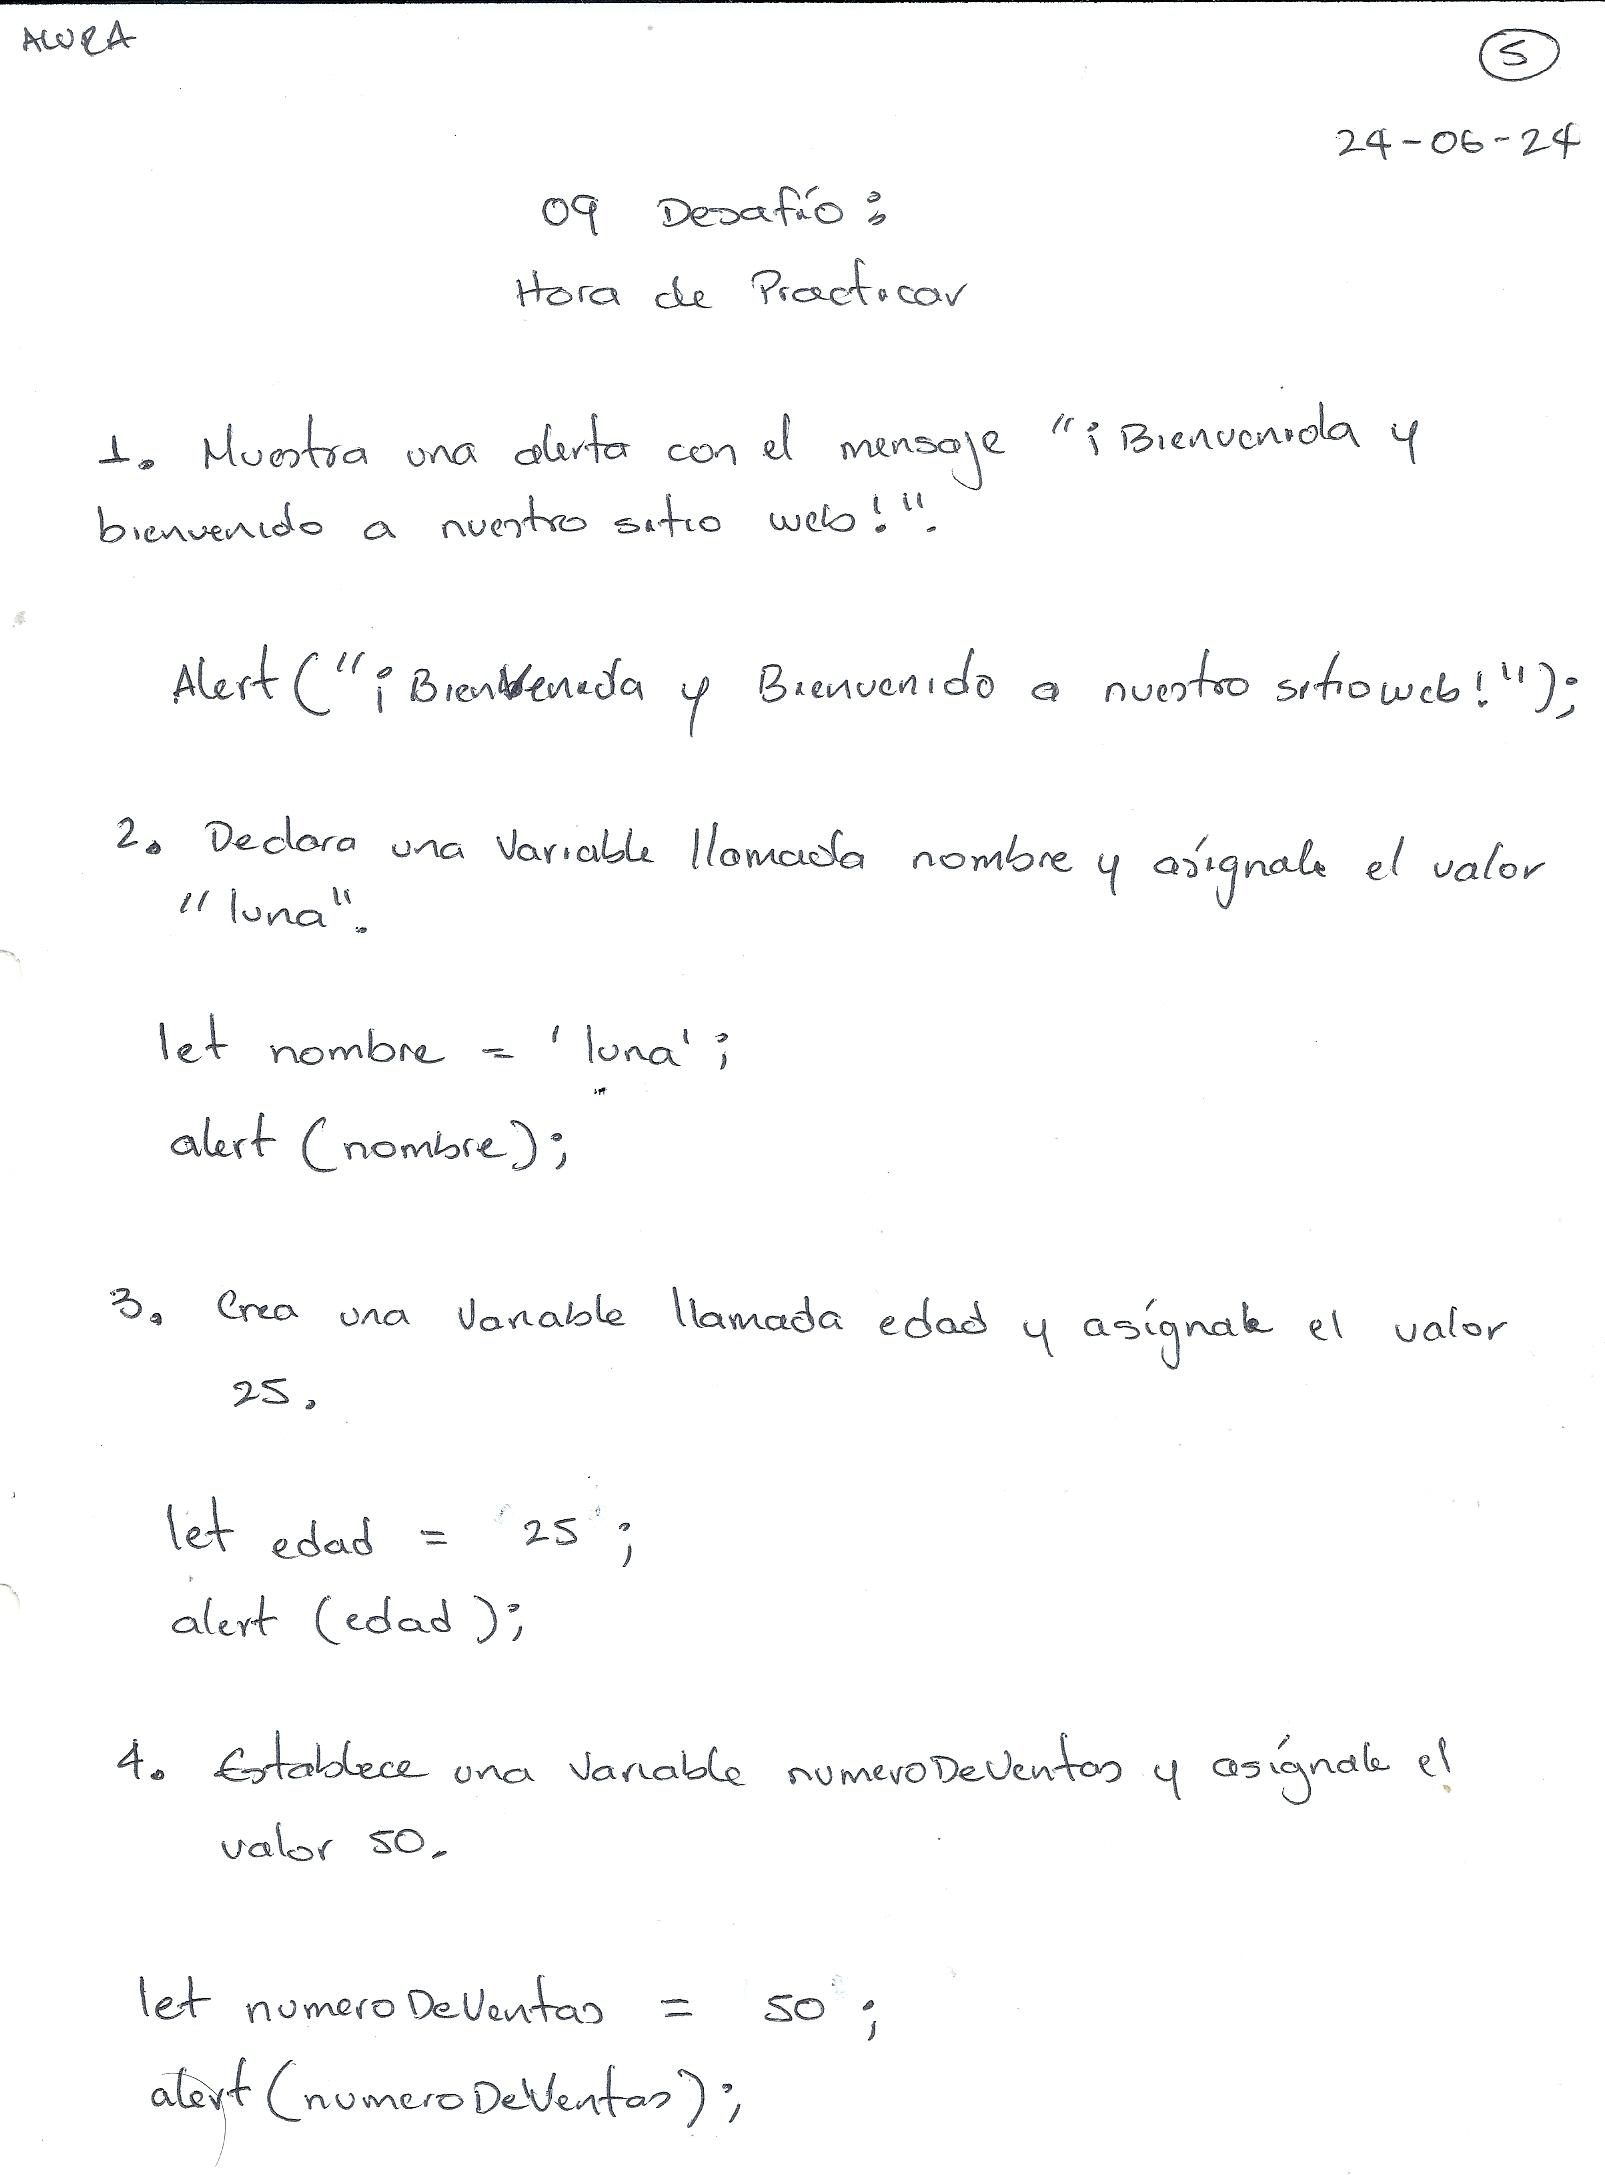 ALURA
5
24-06-24
09 Desafío:
Hora de Practicar
1. Muestra una alerta con el mensaje "¡Bienvenida y
bienvenido a nuestro sitio web!".
Alert("¡Bienvenida y Bienvenido a nuestro sitio web!");
2. Declara una Variable llamada nombre y asígnale el valor
"luna".
let nombre = 'luna';
alert (nombre);
3. Crea una Variable llamada edad y asígnale el valor
25.
let edad = 25;
alert (edad);
4. Establece una Variable numeroDeVentas y asígnale el
valor 50.
let numeroDeVentas = 50;
alert (numeroDeVentas);